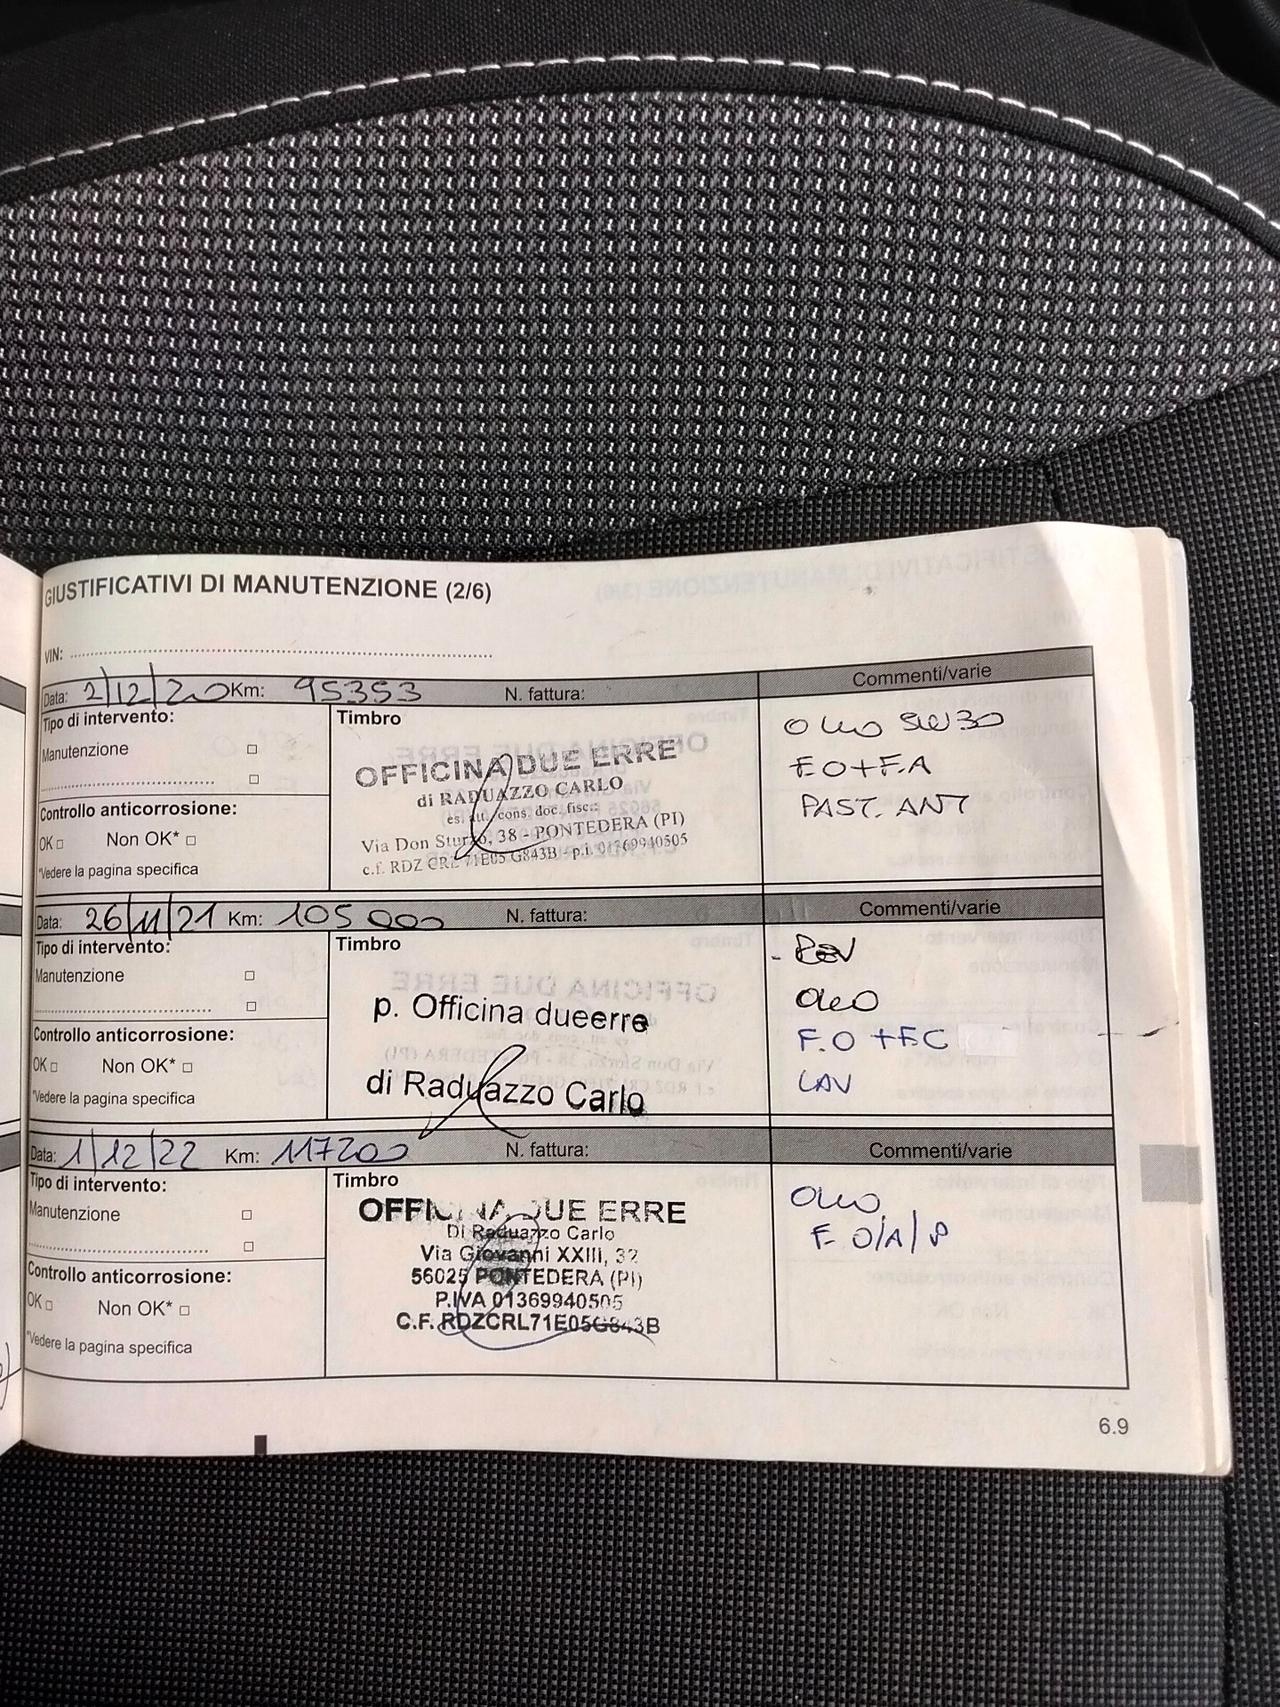 GIUSTIFICATIVI DI MANUTENZIONE (2/6)
VIN:
Data: 2/12/20 Km: 95353 N. fattura: Commenti/varie
Tipo di intervento:
Manutenzione
Controllo anticorrosione:
OK Non OK*
*Vedere la pagina specifica
Timbro
OFFICINA DUE ERRE
di RADUAZZO CARLO
es. att. cons. doc. fisc.:
Via Don Sturzo, 38 - PONTEDERA (PI)
c.f. RDZ CRL 71E05 G843B - p.i. 01369940505
OLIO 5W30
F.O+F.A
PAST. ANT
Data: 26/11/21 Km: 105000 N. fattura: Commenti/varie
Tipo di intervento:
Manutenzione
Controllo anticorrosione:
OK Non OK*
*Vedere la pagina specifica
Timbro
p. Officina dueerre
di Raduazzo Carlo
- REV
OLIO
F.O +F.C
LAV
Data: 1/12/22 Km: 117200 N. fattura: Commenti/varie
Tipo di intervento:
Manutenzione
Controllo anticorrosione:
OK Non OK*
*Vedere la pagina specifica
Timbro
OFFICINA DUE ERRE
Di Raduazzo Carlo
Via Giovanni XXIII, 32
56025 PONTEDERA (PI)
P.IVA 01369940505
C.F. RDZCRL71E05G843B
OLIO
F. O/A/P
6.9